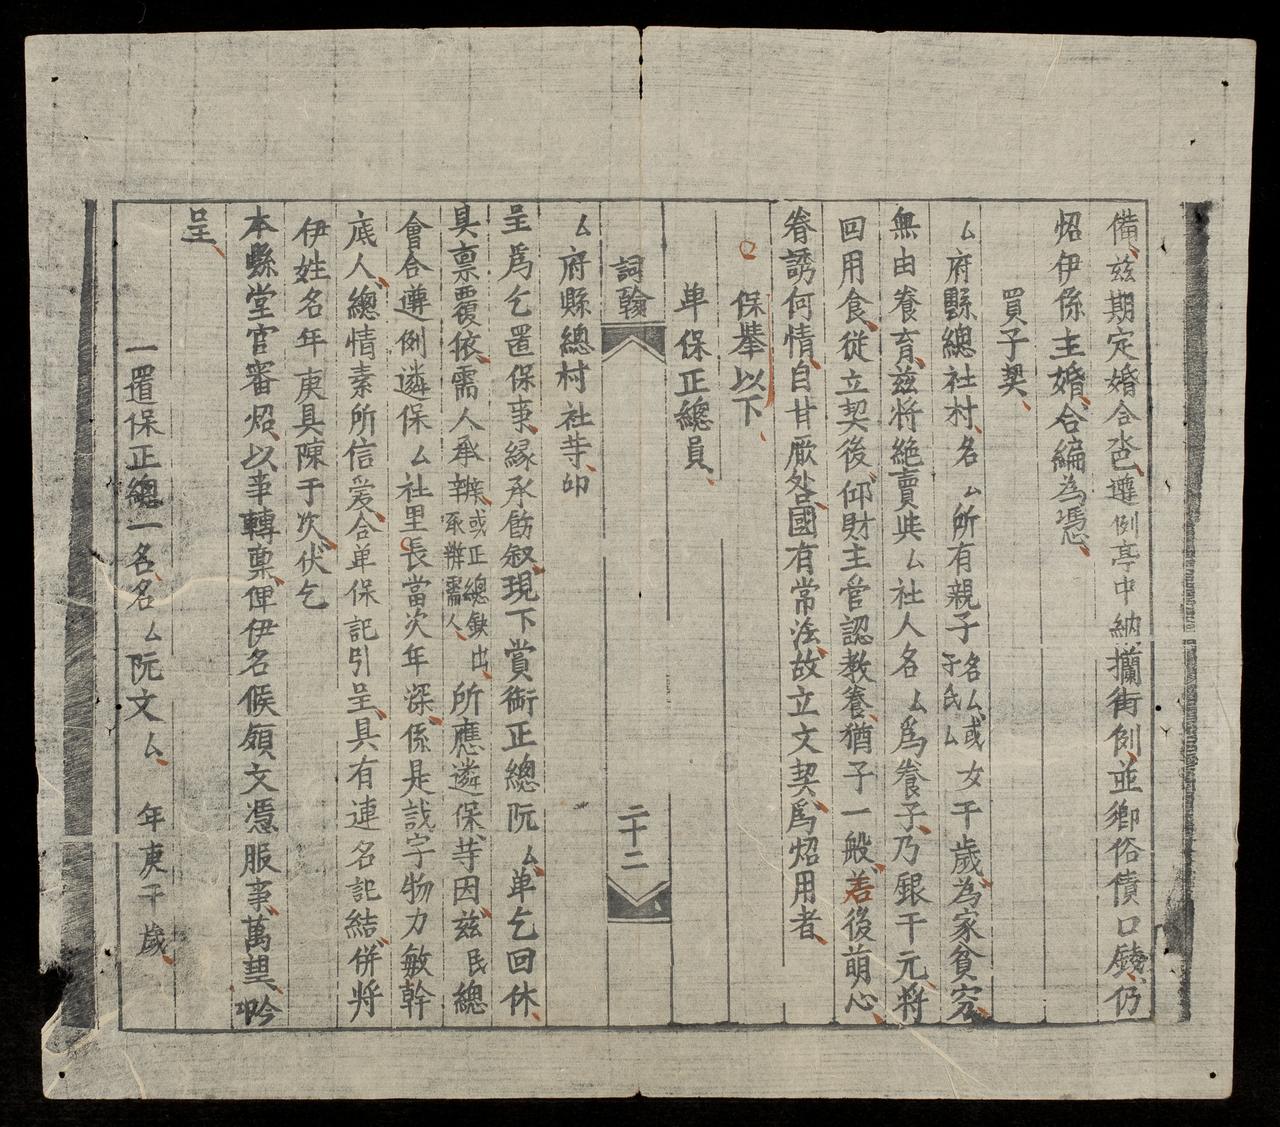 備茲期定婚合卺遵例亭中納攔街例並鄉俗債口錢仍
炤伊係主婚合編為憑
買子契
厶府縣總社村名厶所有親子名厶或子氏厶女干歲為家貧窮
無由養育茲將絶賣與厶社人名厶爲養子乃銀千元將
回用食從立契後仰財主官認教養猶子一般若後萌心
眷誘何情自甘厥咎國有常法故立文契爲炤用者
保舉以下
单保正總員
詞翰
二十二
厶府縣總村社等卬
呈爲乞置保事縁承飭叙現下賞銜正總阮厶单乞回休
具禀覆依需人承辦或正總缺出承辦需人所應遴保等因茲民總
會合遵例遴保厶社里長當次年深係是識字物力敏幹
底人總情素所信爱合单保記引呈具有連名記結併將
伊姓名年庚具陳于次伏乞
本縣堂官審炤以事轉禀俾伊名候領文憑服事萬望聆
呈
一置保正總一名名厶阮文厶年庚干歲